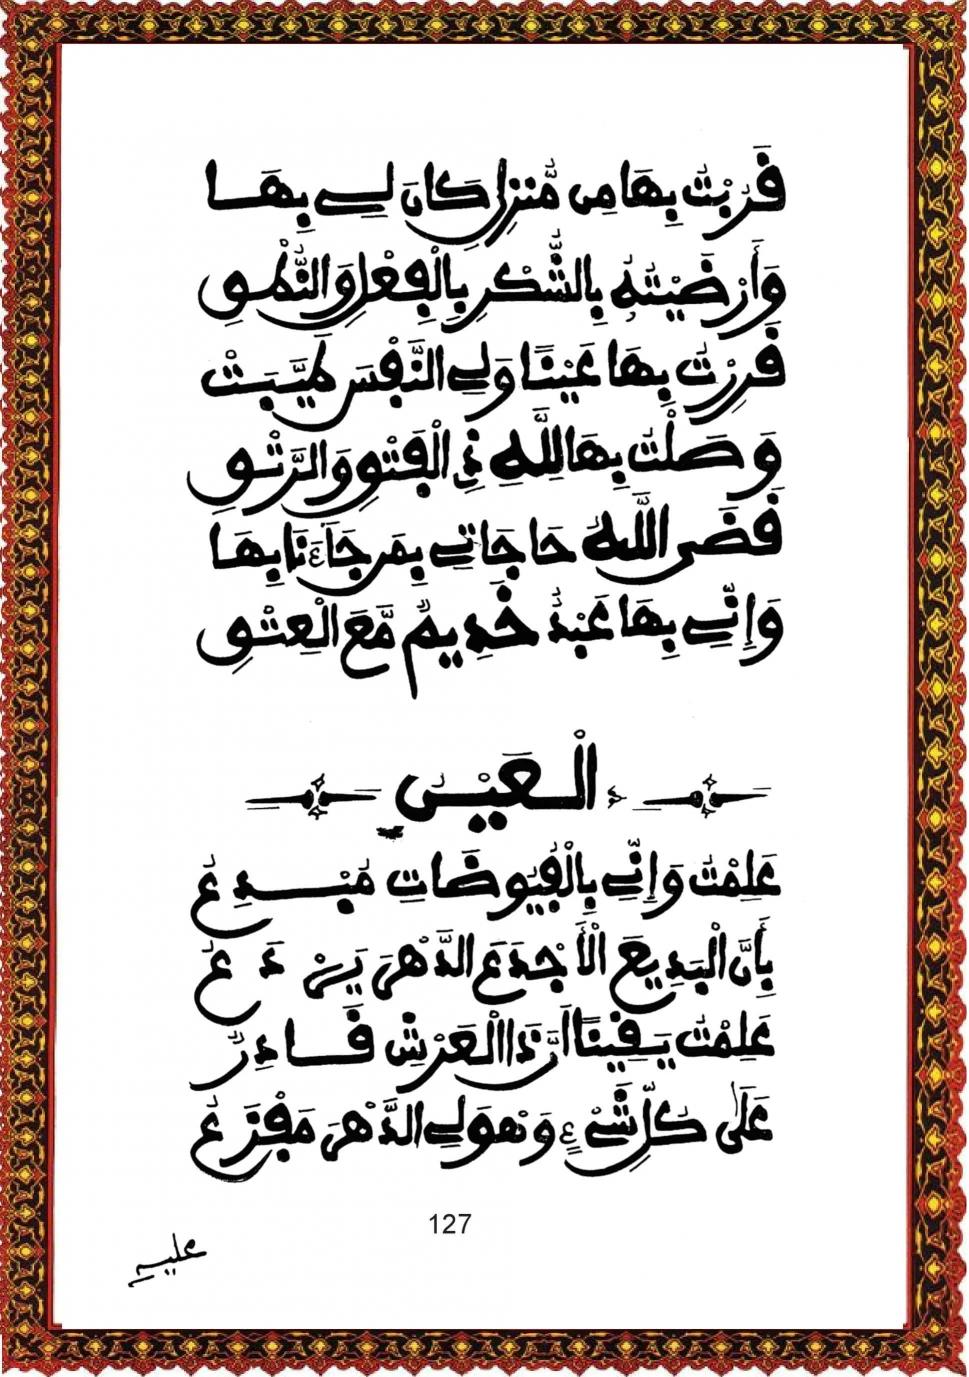 قَرُبْتُ بِهَا مِن مُّنزِلٍ كَانَ لِي بِهَا
وَأَرْضَيْتُهُ بِالشُّكْرِ بِالْفِعْلِ وَالنُّطْقِ
قَرَرْتُ بِهَا عَيْنًا وَلِي النَّفْسَ طَيَّبَتْ
وَصَلْتُ بِهَا لِلَّهِ فِي الْفَتْقِ وَالرَّتْقِ
قَضَى اللَّهُ حَاجَاتِي بِمَن جَاءَنَا بِهَا
وَإِنِّي بِهَا عَبْدٌ خَدِيمٌ مَّعَ الْعِشْقِ
الْعَيْنُ
عَلِمْتُ وَإِنِّي بِالْفُيُوضَاتِ مُبْدِعُ
بِأَنَّ الْبَدِيعَ الْأَجْدَعَ الدَّهْرَ يَرْدَعُ
عَلِمْتُ يَقِينًا أَنَّ ذَا الْعَرْشِ قَادِرٌ
عَلَى كُلِّ شَيْءٍ وَهْوَ لِي الدَّهْرَ مَفْزَعُ
127
عليه